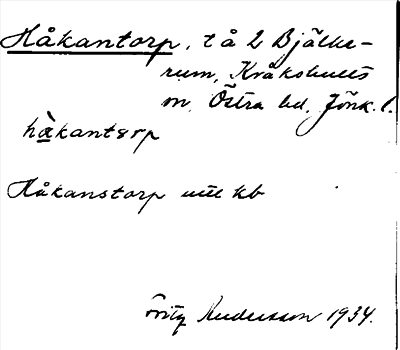 Håkantorp, t å 2 Bjälke-
rum, Kråkshults
sn, Östra hd, Jönk. l.
hàkantərp
Håkanstorp utt kb
Fritz Andersson 1934.